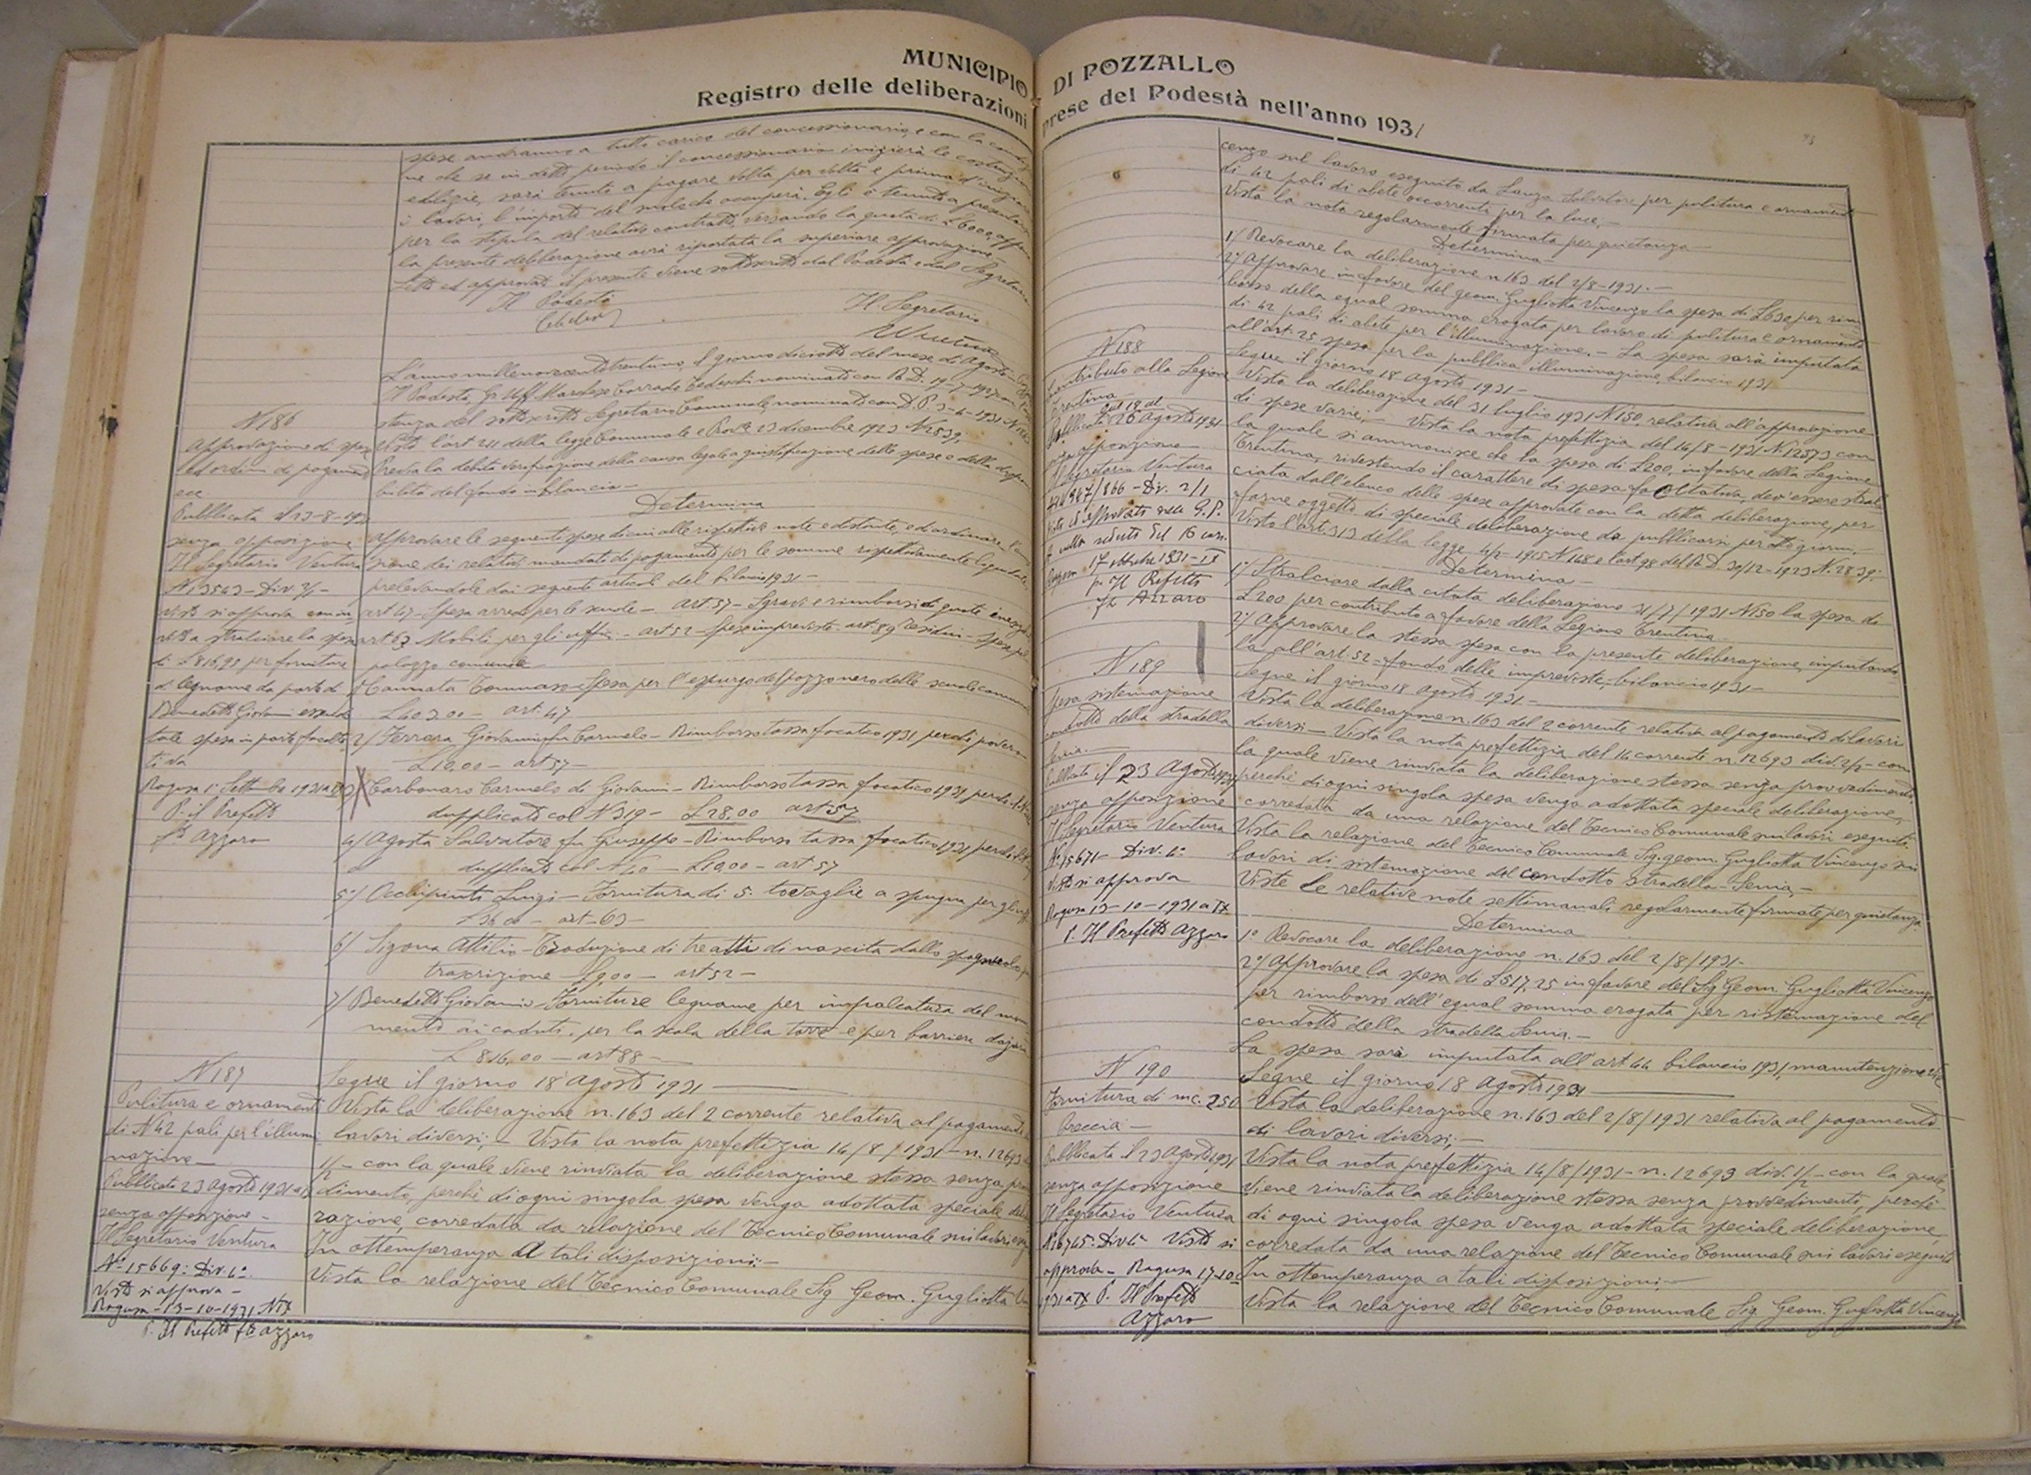 MUNICIPIO DI POZZALLO
Registro delle deliberazioni prese del Podestà nell'anno 1931
spese andranno a tutto carico del concessionario, e con la
ne che se in detto periodo il concessionario inizierà le costruzioni
edilizie, sarà tenuto a pagare volta per volta e prima d'iniziare
i lavori, l'importo del suolo che occuperà. Egli è tenuto a presentarsi
per la stipula del relativo contratto, versando la quota di L 6000, appena
la presente deliberazione avrà riportata la superiore approvazione
Letto ed approvato il presente viene sottoscritto dal Podestà e dal Segretario
Il Podestà
Il Segretario
Ventura
L'anno millenovecentotrentuno, il giorno diciotto del mese di Agosto in
Il Podestà, Gr. Uff. Marchese Corrado Tedeschi nominato con R.D. 19-7-1927 con
stenza del sottoscritto Segretario Comunale, nominato con D.P. 3-4-1931
N 186
Approvazione di spese
ed ordini di pagamento
ecc
Pubblicata il 23-8-1931
senza opposizione
Il Segretario Ventura
N 13543 - Div 2/1 -
Visto si approva con in
vito a stralciare la spesa
di L 816,93 per forniture
di legname da parte di
Benedetto Giovanni essendo
tale spesa in parte facolta
tiva
Ragusa 1° Settembre 1931 a IX
P. il Prefetto
fto Azzaro
Visto l'art 211 della legge Comunale e Prov.le 23 dicembre 1923 N 2839,
Previa la debita verificazione della causa legale e giustificazione delle spese e della dispon
bilità del fondo in bilancio -
Determina
approvare le seguenti spese di cui alle rispettive note e distinte, ed ordinare l'emis
sione dei relativi mandati di pagamento per le somme rispettivamente liquidate,
prelevandole dai seguenti articoli del bilancio 1931 -
art 47 - Spesa arredi per le scuole - art. 57 - Sgravi e rimborsi di quote inesigi
art 63 Mobili per gli uffici - art 52 - Spese impreviste - art 89 Residui - Spesa pel
palazzo comunale
1/ Cannata Tommaso - Spesa per l'espurgo del pozzo nero delle scuole comun
L 403.00 - art. 47
2/ Ferrera Giovanni fu Carmelo - Rimborso tassa focatico 1931 perché povero
L 10,00 - art 57 -
3/ Carbonaro Carmelo di Giovanni - Rimborso tassa focatico 1931, perché
dupplicato col N 319 - L 28,00 art. 57
4/ Agosta Salvatore fu Giuseppe - Rimborso tassa focatico 1931 perché
dupplicato col N 40 - L 10,00 - art. 57
5°/ Occhipinti Luigi - Fornitura di 5 tovaglie a spugna per gli uff
L 36,00 - art - 63 -
6/ Sigona Attilio - Traduzione di tre atti di nascita dallo spagnuolo per
trascrizione - L 9,00 - art 52 -
7/ Benedetto Giovanni - Forniture legname per impalcatura del monu
mento ai caduti, per la scala della torre e per barriere dazarie
L 816,00 - art 88 -
N 187
Pulitura e ornamento
di N 42 pali per l'illumi
nazione -
Pubblicata 23 Agosto 1931 a IX
senza opposizione -
Il Segretario Ventura
N° 15669: Div. 4°
Visto si approva -
Ragusa - 13-10-1931 IX
P. Il Prefetto fto Azzaro
Segue il giorno 18 Agosto 1931
Vista la deliberazione n. 163 del 2 corrente relativa al pagamento di
lavori diversi; - Vista la nota prefettizia 14/8/1931 - n. 12693
1/2 - con la quale viene rinviata la deliberazione stessa senza prov
dimento, perché di ogni singola spesa venga adottata speciale delibe
razione, corredata da relazione del Tecnico Comunale sui lavori eseg
In ottemperanza a tali disposizioni: -
Vista la relazione del Tecnico Comunale Sig Geom. Gugliotta Vin
cenzo sul lavoro eseguito da Lanza Salvatore per pulitura e ornamento
di 42 pali di abete occorrenti per la luce, -
Vista la nota regolarmente firmata per quietanza -
Determina -
1/ Revocare la deliberazione n 163 del 2/8-1931. -
2°/ Approvare in favore del geom. Gugliotta Vincenzo la spesa di L 630 per rim
borso della egual somma erogata per lavoro di pulitura e ornamento
di 42 pali di abete per l'illuminazione. - La spesa sarà imputata
all'art. 25 spesa per la pubblica illuminazione, bilancio 1931 -
N 188
Contributo alla Legione
Trentina
Pubblicata il 26 Agosto 1931
senza opposizione
Il Segretario Ventura
Visto si approvato dalla G.P.
A. nella seduta del 16 corr.
Ragusa 17 ottobre 1931 - IX
p. Il Prefetto
fto Azzaro
Segue il giorno 18 Agosto 1931 -
Vista la deliberazione del 31 luglio 1931 N 150, relativa all'approvazione
di spese varie; - Vista la nota prefettizia del 14/8-1931 N. 12573 con
la quale si ammonisce che la spesa di L 200, in favore della Legione
Trentina, rivestendo il carattere di spesa facoltativa, dev'essere stral
ciata dall'elenco delle spese approvate con la detta deliberazione, per
farne oggetto di speciale deliberazione da pubblicarsi per otto giorni. -
Visto l'art. 313 della legge 4/2-1915 N 148 e l'art 98 del R.D. 30/12-1923 N. 2839;
Determina -
1°/ Stralciare dalla citata deliberazione 31/7/1931 N 150 la spesa di
L 200 per contributo a favore della Legione Trentina. -
2°/ Approvare la stessa spesa con la presente deliberazione, imputando
la all'art. 52 - fondo delle impreviste, bilancio 1931 -
N 189
Spesa sistemazione
condotto della stradella
Senia. -
Pubblicata il 23 Agosto 1931
senza opposizione
Il Segretario Ventura
N° 15671 - Div. 4°
Visto si approva
Ragusa 13-10-1931 a IX
P. Il Prefetto Azzaro
Segue il giorno 18 Agosto 1931 -
Vista la deliberazione n. 163 del 2 corrente relativa al pagamento di lavori
diversi - Vista la nota prefettizia del 14 corrente n 12693 div. 1/2 - con
la quale viene rinviata la deliberazione stessa senza provvedimento,
perché di ogni singola spesa venga adottata speciale deliberazione,
corredata da una relazione del Tecnico Comunale sui lavori eseguiti
Vista la relazione del Tecnico Comunale Sig. geom. Gugliotta Vincenzo sui
lavori di sistemazione del condotto stradella - Senia, -
Viste le relative note settimanali regolarmente firmate per quietanza
Determina
1° Revocare la deliberazione n. 163 del 2/8/1931 -
2°/ Approvare la spesa di L 517,25 in favore del Sig Geom. Gugliotta Vincenzo
per rimborso dell'egual somma erogata per sistemazione del
condotto della stradella Senia. -
La spesa sarà imputata all'art 44 bilancio 1931, manutenzione
N 190
Fornitura di mc. 250
breccia -
Pubblicata il 23 Agosto 1931
senza opposizione
Il Segretario Ventura
N 16745 - Div 4° Visto si
approva - Ragusa 17-10-
931 a IX P. Il Prefetto
Azzaro
Segue il giorno 18 Agosto 1931
Vista la deliberazione n. 163 del 2/8/1931 relativa al pagamento
di lavori diversi; -
Vista la nota prefettizia 14/8/1931 - n. 12693 div. 1/2 - con la quale
viene rinviata la deliberazione stessa senza provvedimento, perché
di ogni singola spesa venga adottata speciale deliberazione
corredata da una relazione del Tecnico Comunale sui lavori eseguiti
In ottemperanza a tali disposizioni: -
Vista la relazione del Tecnico Comunale Sig. Geom. Gugliotta Vincenzo